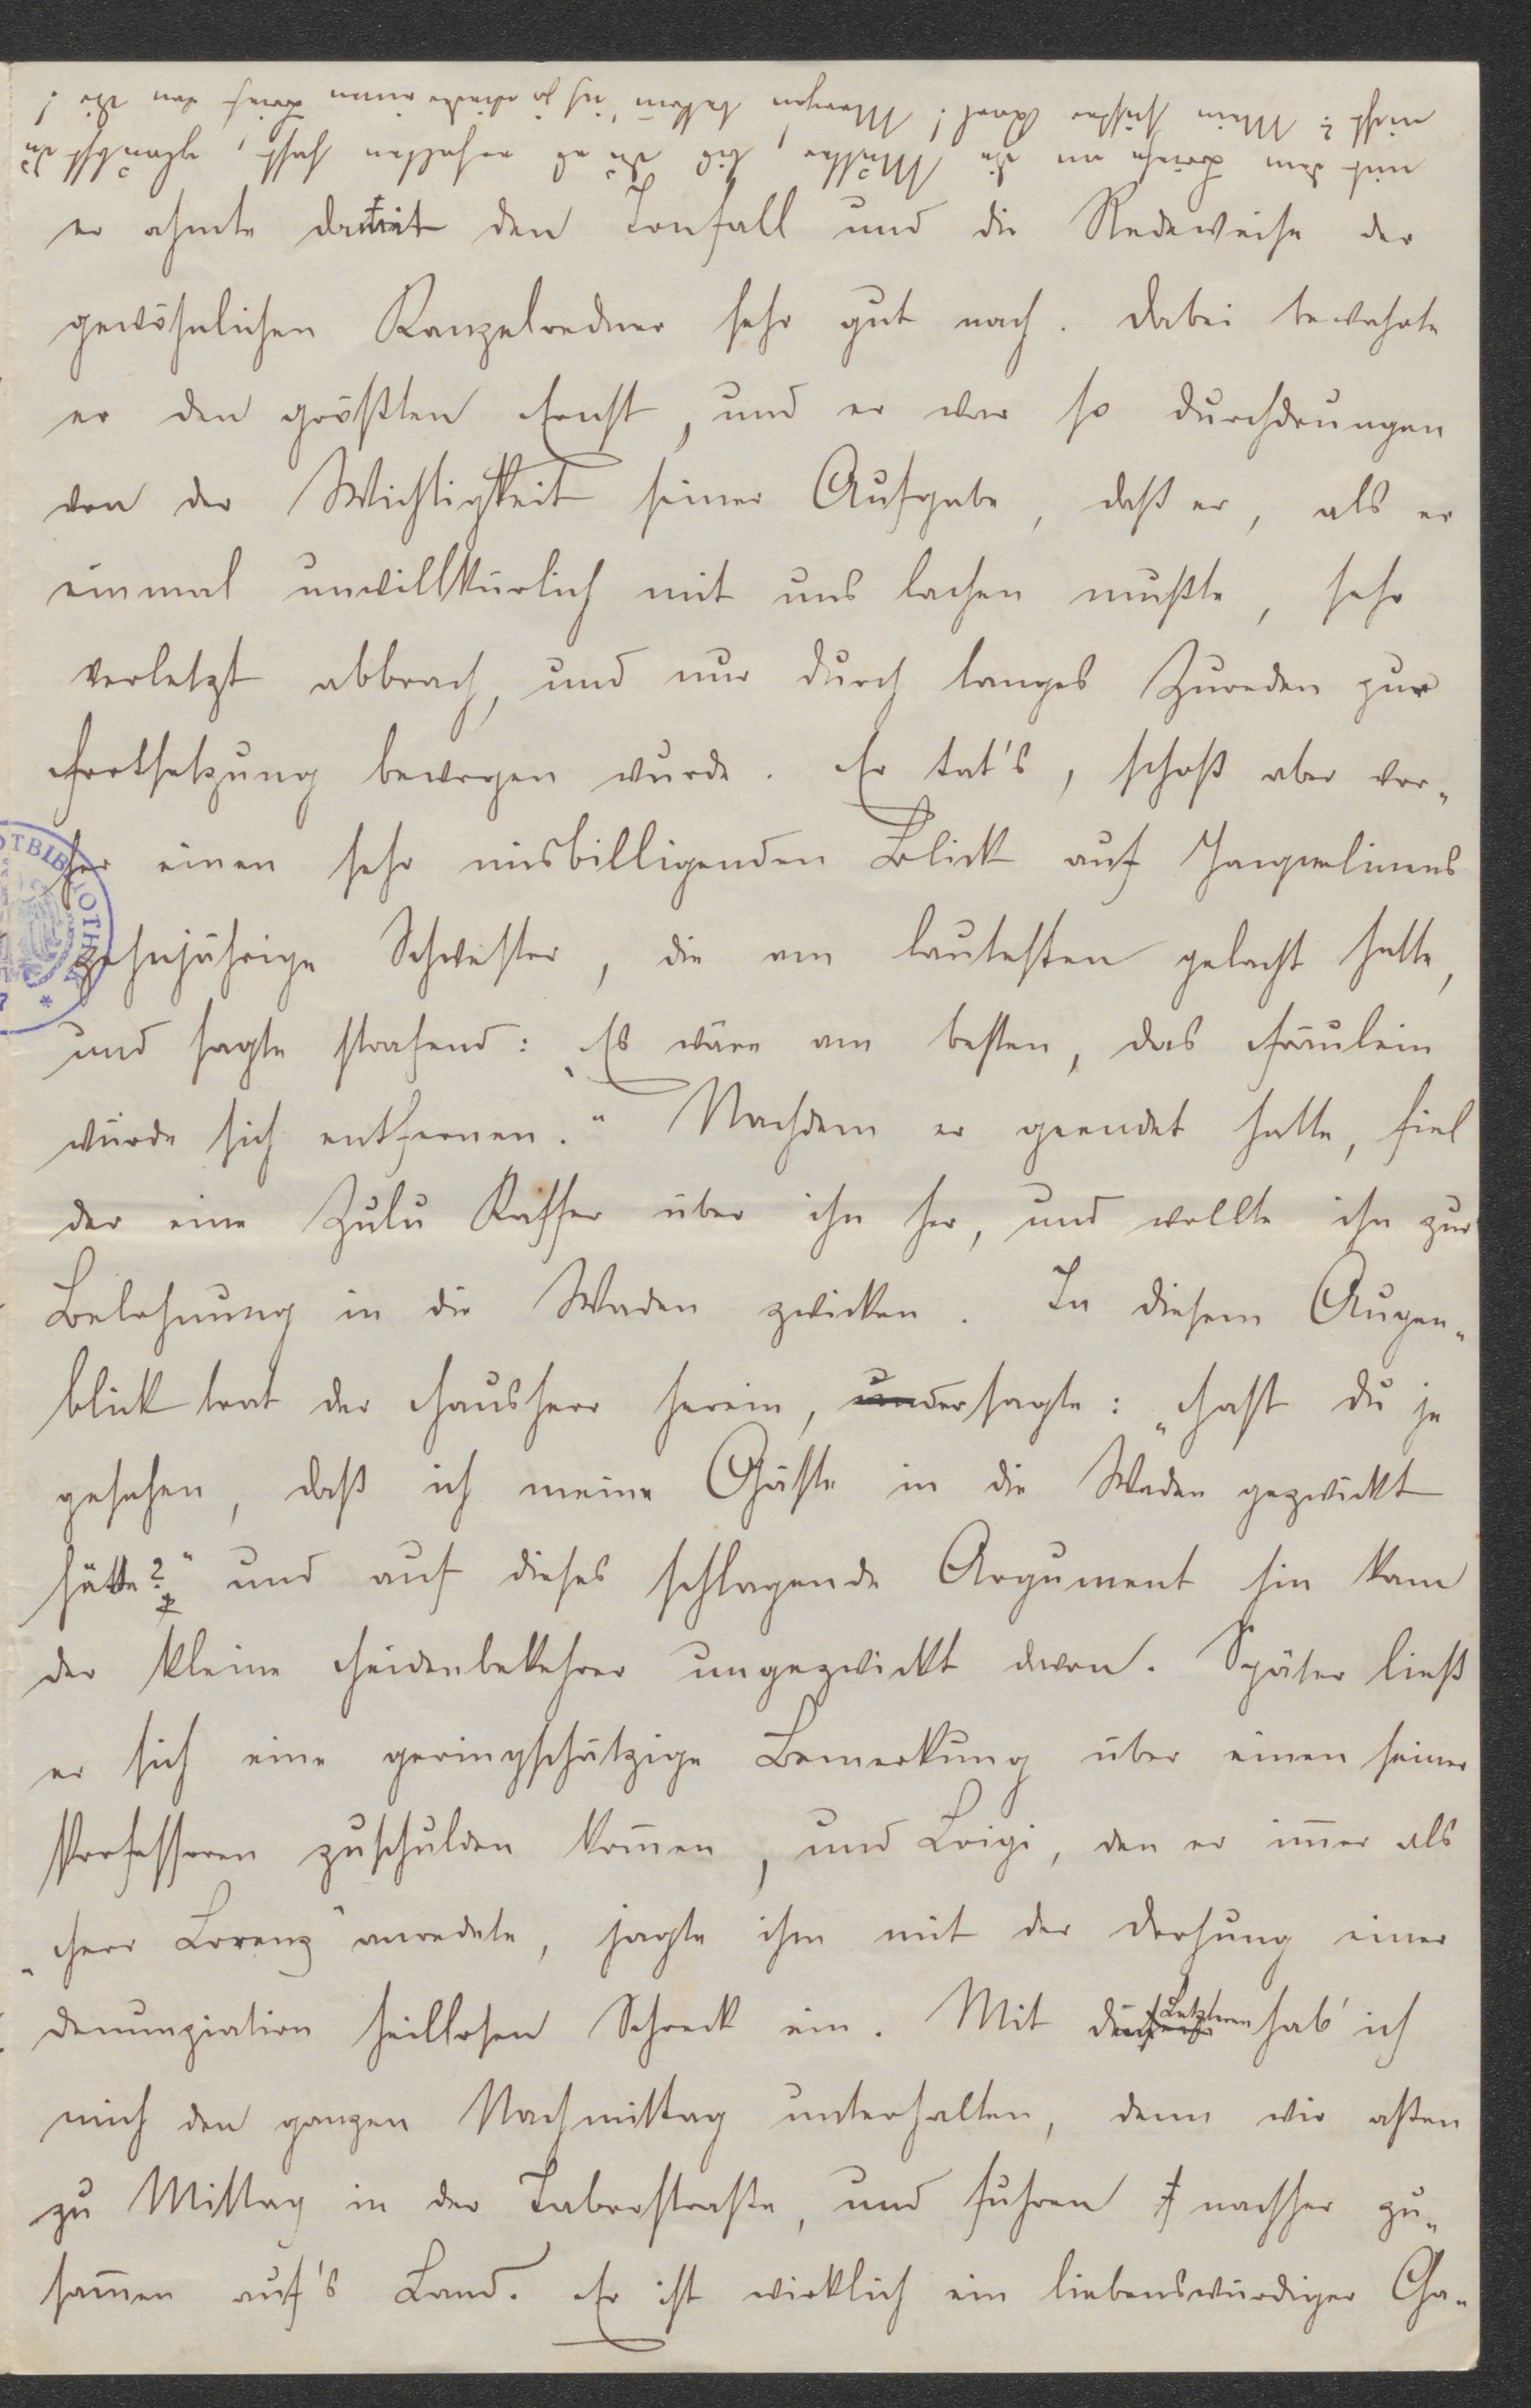 mit dem Briefe an die Mutter, bis du es erhalten hast, glaubst du
nicht? Mein süsser Karl! Morgen bekom̄ ich ja wieder einen Brief von dir!
er ahmte damit den Tonfall und die Redeweise der
gewöhnlichen Kanzelredner sehr gut nach. Dabei bewahrte
er den größten Ernst, und er war so durchdrungen
von der Wichtigkeit seiner Aufgabe, daß er, als er
einmal unwillkürlich mit uns lachen mußte, sehr
verletzt abbrach, und nur durch langes Zureden zur
Fortsetzung bewogen wurde. Er tat's, schoß aber vor-
her einen sehr misbilligenden Blick auf Jaquelinens
zehnjährige Schwester, die am lautesten gelacht hatte,
und sagte strafend: „Es wäre am besten, das Fräulein
würde sich entfernen." Nachdem er geendet hatte, fiel
der eine Zulu Kaffer über ihn her, und wollte ihn zur
Belohnung in die Waden zwicken. In diesem Augen-
blick trat der Hausherr herein, und er sagte: „Hast du je
gesehen, daß ich meine Gäste in die Waden gezwickt
hätte?" und auf dieses schlagende Argument hin kam
der kleine Heidenbekehrer ungezwickt davon. Später ließ
er sich eine geringschätzige Bemerkung über einen seiner
Professoren zuschulden kom̄en, und Loigi, den er im̄er als
„Herr Lorenz" anredete, jagte ihm mit der Drohung einer
Denunziation heillosen Schreck ein. Mit Letzteren hab' ich
mich den ganzen Nachmittag unterhalten, denn wir aßen
zu Mittag in der Taborstraße, und fuhren nachher zu-
sam̄en auf's Land. Er ist wirklich ein liebenswürdiger Cha-
OTBIBLIOTHEK